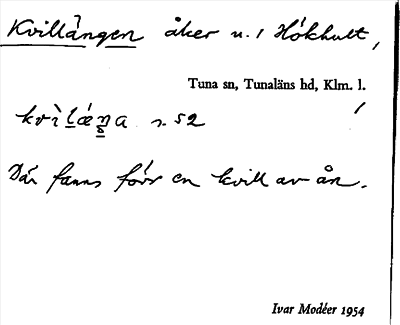 Kvillängen åker n. 1 Hökhult,
Tuna sn, Tunaläns hd, Klm. l.
kvìlǽŋa s. 52
Där fanns förr en kvill av ån.
Ivar Modéer 1954